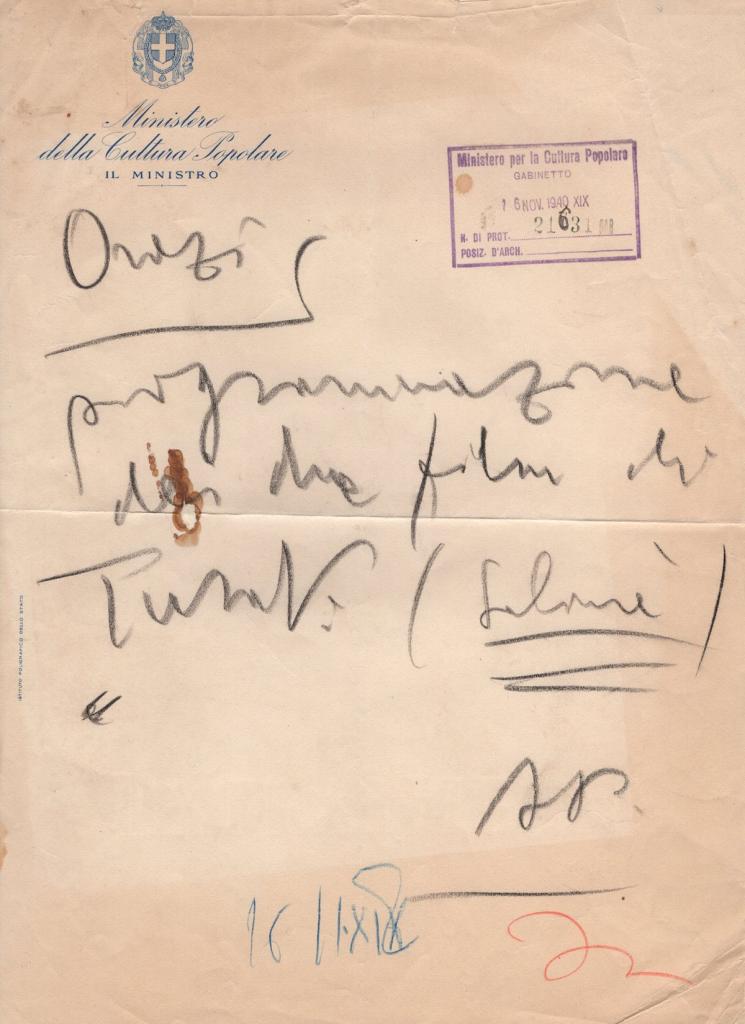 Ministero
della Cultura Popolare
IL MINISTRO
Ministero per la Cultura Popolare
GABINETTO
16 NOV. 1940 XIX
N. DI PROT. 21631
POSIZ. D'ARCH.
Orazi
programmazione
dei due film di
(Salomè)
16 11 XIX
ISTITUTO POLIGRAFICO DELLO STATO